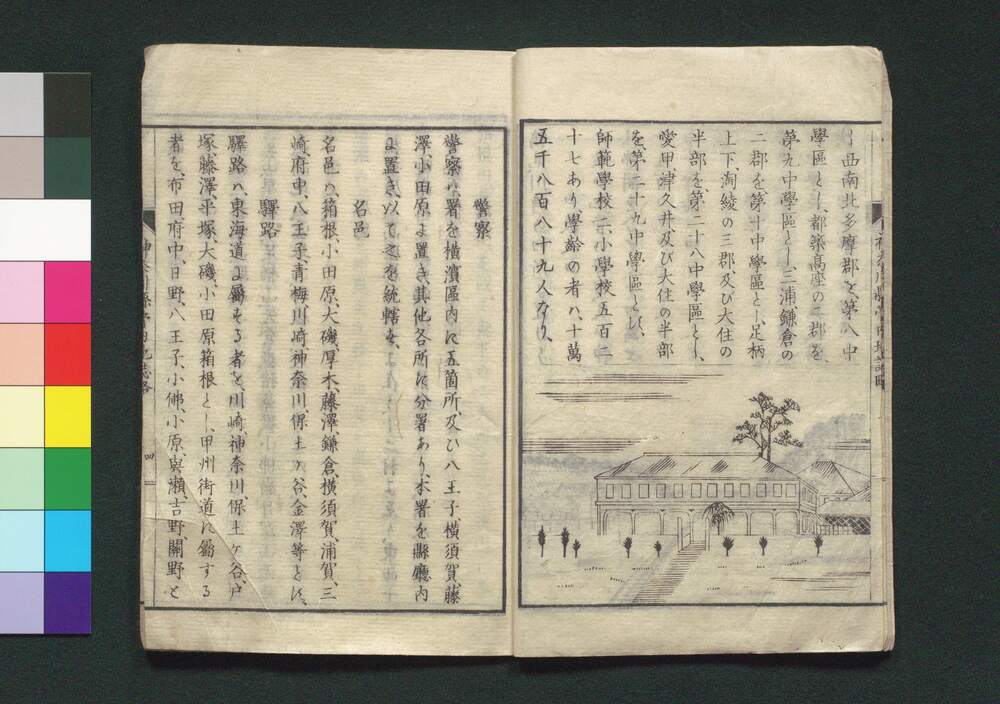 西南北多摩郡を、第八中
學區とし、都築高座の二郡を、
第九中學區とし、三浦、鎌倉の
二郡を第十中學區とし、足柄
上下、淘綾の三郡及び大住の
半部を、第二十八中學區とし、
愛甲、津久井、及び大住の半部
を、第二十九中學區とし、
師範學校二、小學校五百二
十七あり學齡の者ハ、十萬
五千八百八十九人なり、
警察
警察ハ署を横濱區内に五箇所、及ひ八王子、横須賀、藤
澤、小田原よ置き、其他各所に分署あり、本署を縣廳内
よ置き、以て之を統轄せ、
名邑
名邑ハ、箱根、小田原、大磯、厚木、藤澤鎌倉、横須賀、浦賀、三
崎、府中、八王子、青梅川崎神奈川、保土ヶ谷、金澤等とに、
驛路
驛路ハ、東海道よ屬する者を、川崎、神奈川、保土ヶ谷、戸
塚、藤澤、平塚、大磯、小田原箱根とし、甲州街道に屬する
者を、布田、府中、日野、八王子、小佛、小原、與瀬、吉野、關野と
四